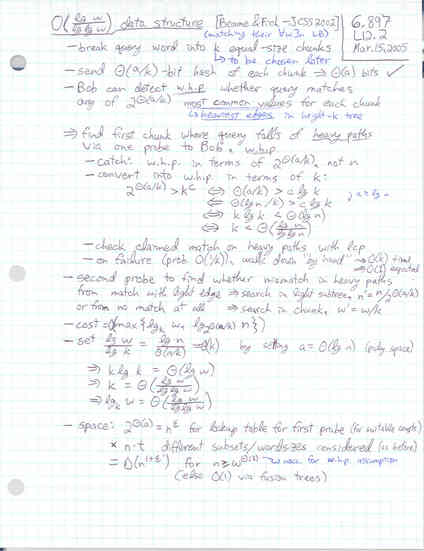 O(lg w / lg lg w) data structure [Beame & Fich – JCSS 2002]
(matching their ∀w∃n LB)
6.897
L12.2
Mar. 15, 2005
– break query word into k equal-size chunks
↳ to be chosen later
– send Θ(a/k)-bit hash of each chunk ⇒ Θ(a) bits ✓
– Bob can detect w.h.p. whether query matches
any of 2^Θ(a/k) most common values for each chunk
↳ heaviest edges in height-k tree
⇒ find first chunk where query falls off heavy paths
via one probe to Bob, w.h.p.
– catch: w.h.p. in terms of 2^Θ(a/k), not n
– convert into w.h.p. in terms of k:
2^Θ(a/k) > k^c ⇔ Θ(a/k) > c lg k
⇔ Θ(lg n/k) > c lg k
⇔ k lg k < Θ(lg n)
⇔ k < Θ(lg n / lg lg n)
– check claimed match on heavy paths with lcp
– on failure (prob O(1/k)), walk down "by hand" ⇒ O(k) time
⇒ O(1) expected
– second probe to find whether mismatch in heavy paths
from match with light edge ⇒ search in light subtree, n' = n/2^Θ(a/k)
or from no match at all ⇒ search in chunk, w' = w/k
– cost = O(max{lg_k w, lg_2^Θ(a/k) n})
– set lg w / lg k = lg n / Θ(a/k) = Θ(k) by setting a = Θ(lg n) (poly space)
⇒ k lg k = Θ(lg w)
⇒ k = Θ(lg w / lg lg w)
⇒ lg_k w = Θ(lg w / lg lg w)
– space: 2^Θ(a) = n^ε for lookup table for first probe (for suitable consts)
× n·t different subsets/wordsizes considered (as before)
= O(n^1+ε) for n ≥ w^Ω(1) for w.h.p. assumption
(else O(1) via fusion trees)